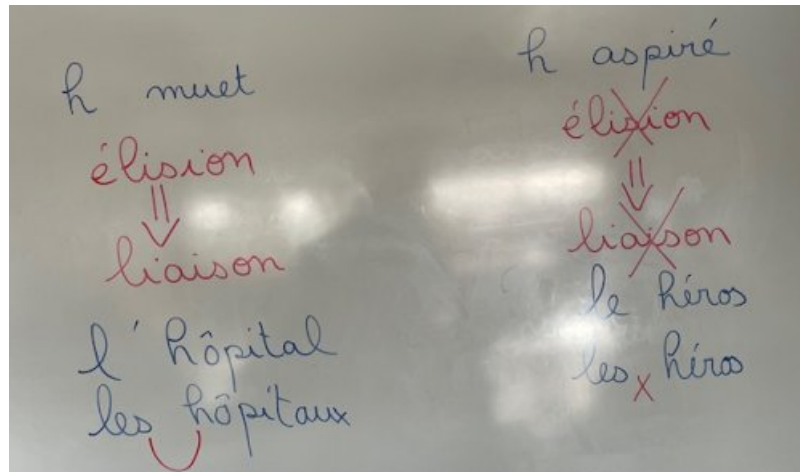 h muet
élision
liaison
l'hôpital
les hôpitaux
h aspiré
élision
liaison
le héros
les x héros